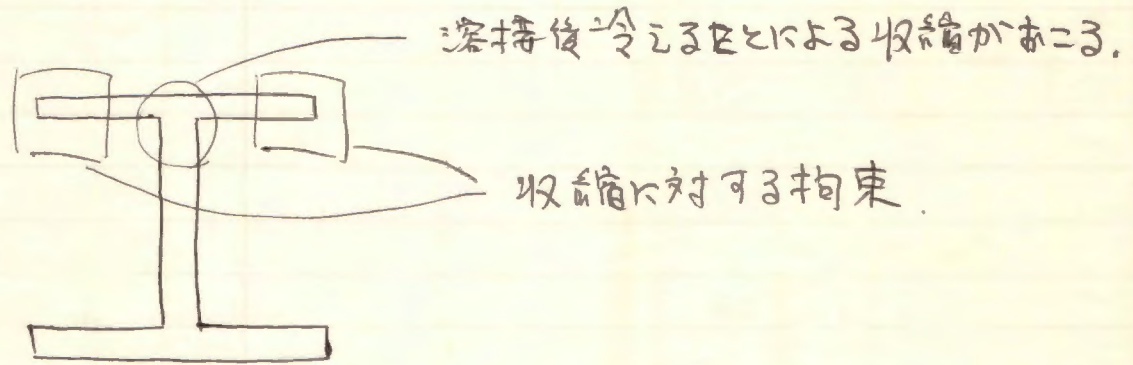 溶接後冷えることによる収縮がおこる.
収縮に対する拘束.